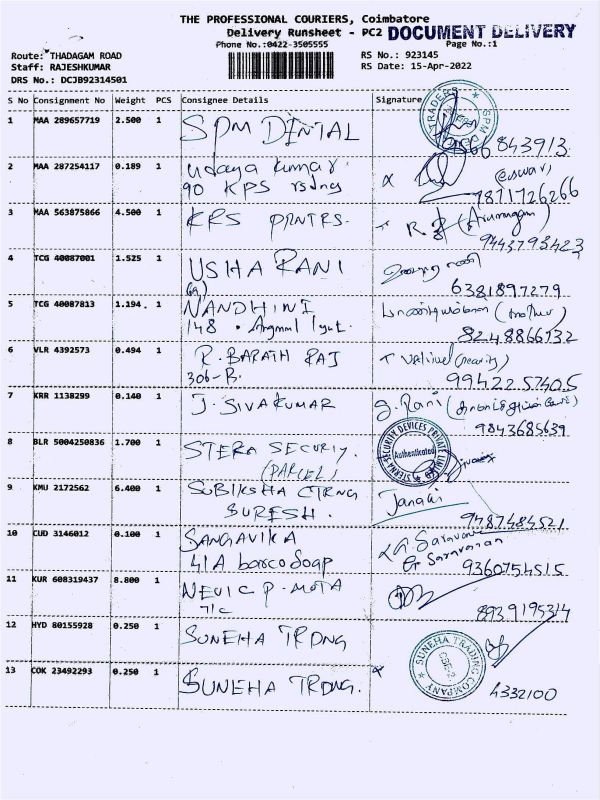 THE PROFESSIONAL COURIERS, Coimbatore
Delivery Runsheet - PC2 DOCUMENT DELIVERY
Phone No.:0422-3505555 Page No.:1
Route: THADAGAM ROAD RS No.: 923145
Staff: RAJESHKUMAR RS Date: 15-Apr-2022
DRS No.: DCJB92314501
S No Consignment No Weight PCS Consignee Details Signature
1 MAA 289657719 2.500 1 SPM DENTAL TRADERS SPM
843913
2 MAA 287254117 0.189 1 Udaya Kumar
90 KPS rsdncy (Eswar)
7871726266
3 MAA 563875866 4.500 1 KRS PRNTRS. (Arumugam)
9443793423
4 TCG 40087001 1.525 1 USHA RANI
6381897279
5 TCG 40087813 1.194 1 NANDHINI (mother)
148
8248866732
6 VLR 4392573 0.494 1 R. BARATH RAJ
306-B. 9942257405
7 KRR 1138299 0.140 1 J. SIVAKUMAR J. Rani
9843685639
8 BLR 5004250836 1.700 1 STERA SECURITY. STERNA SECURITY DEVICES PRIVATE LIMITED
(PARCEL) Authenticated
9 KMU 2172562 6.400 1 SUBIKSHA CTRNG Janaki
SURESH. 9487484521
10 CUD 3146012 0.100 1 SANGAVIKA G. Saravanan
41A barco Soap G. Saravanan
9360754515
11 KUR 608319437 8.800 1 NEVIC P-MOTA
71C 8939195314
12 HYD 80155928 0.250 1 SUNEHA TRDNG
13 COK 23492293 0.250 1 SUNEHA TRDNG. SUNEHA TRADING COMPANY CBE-2
4332100